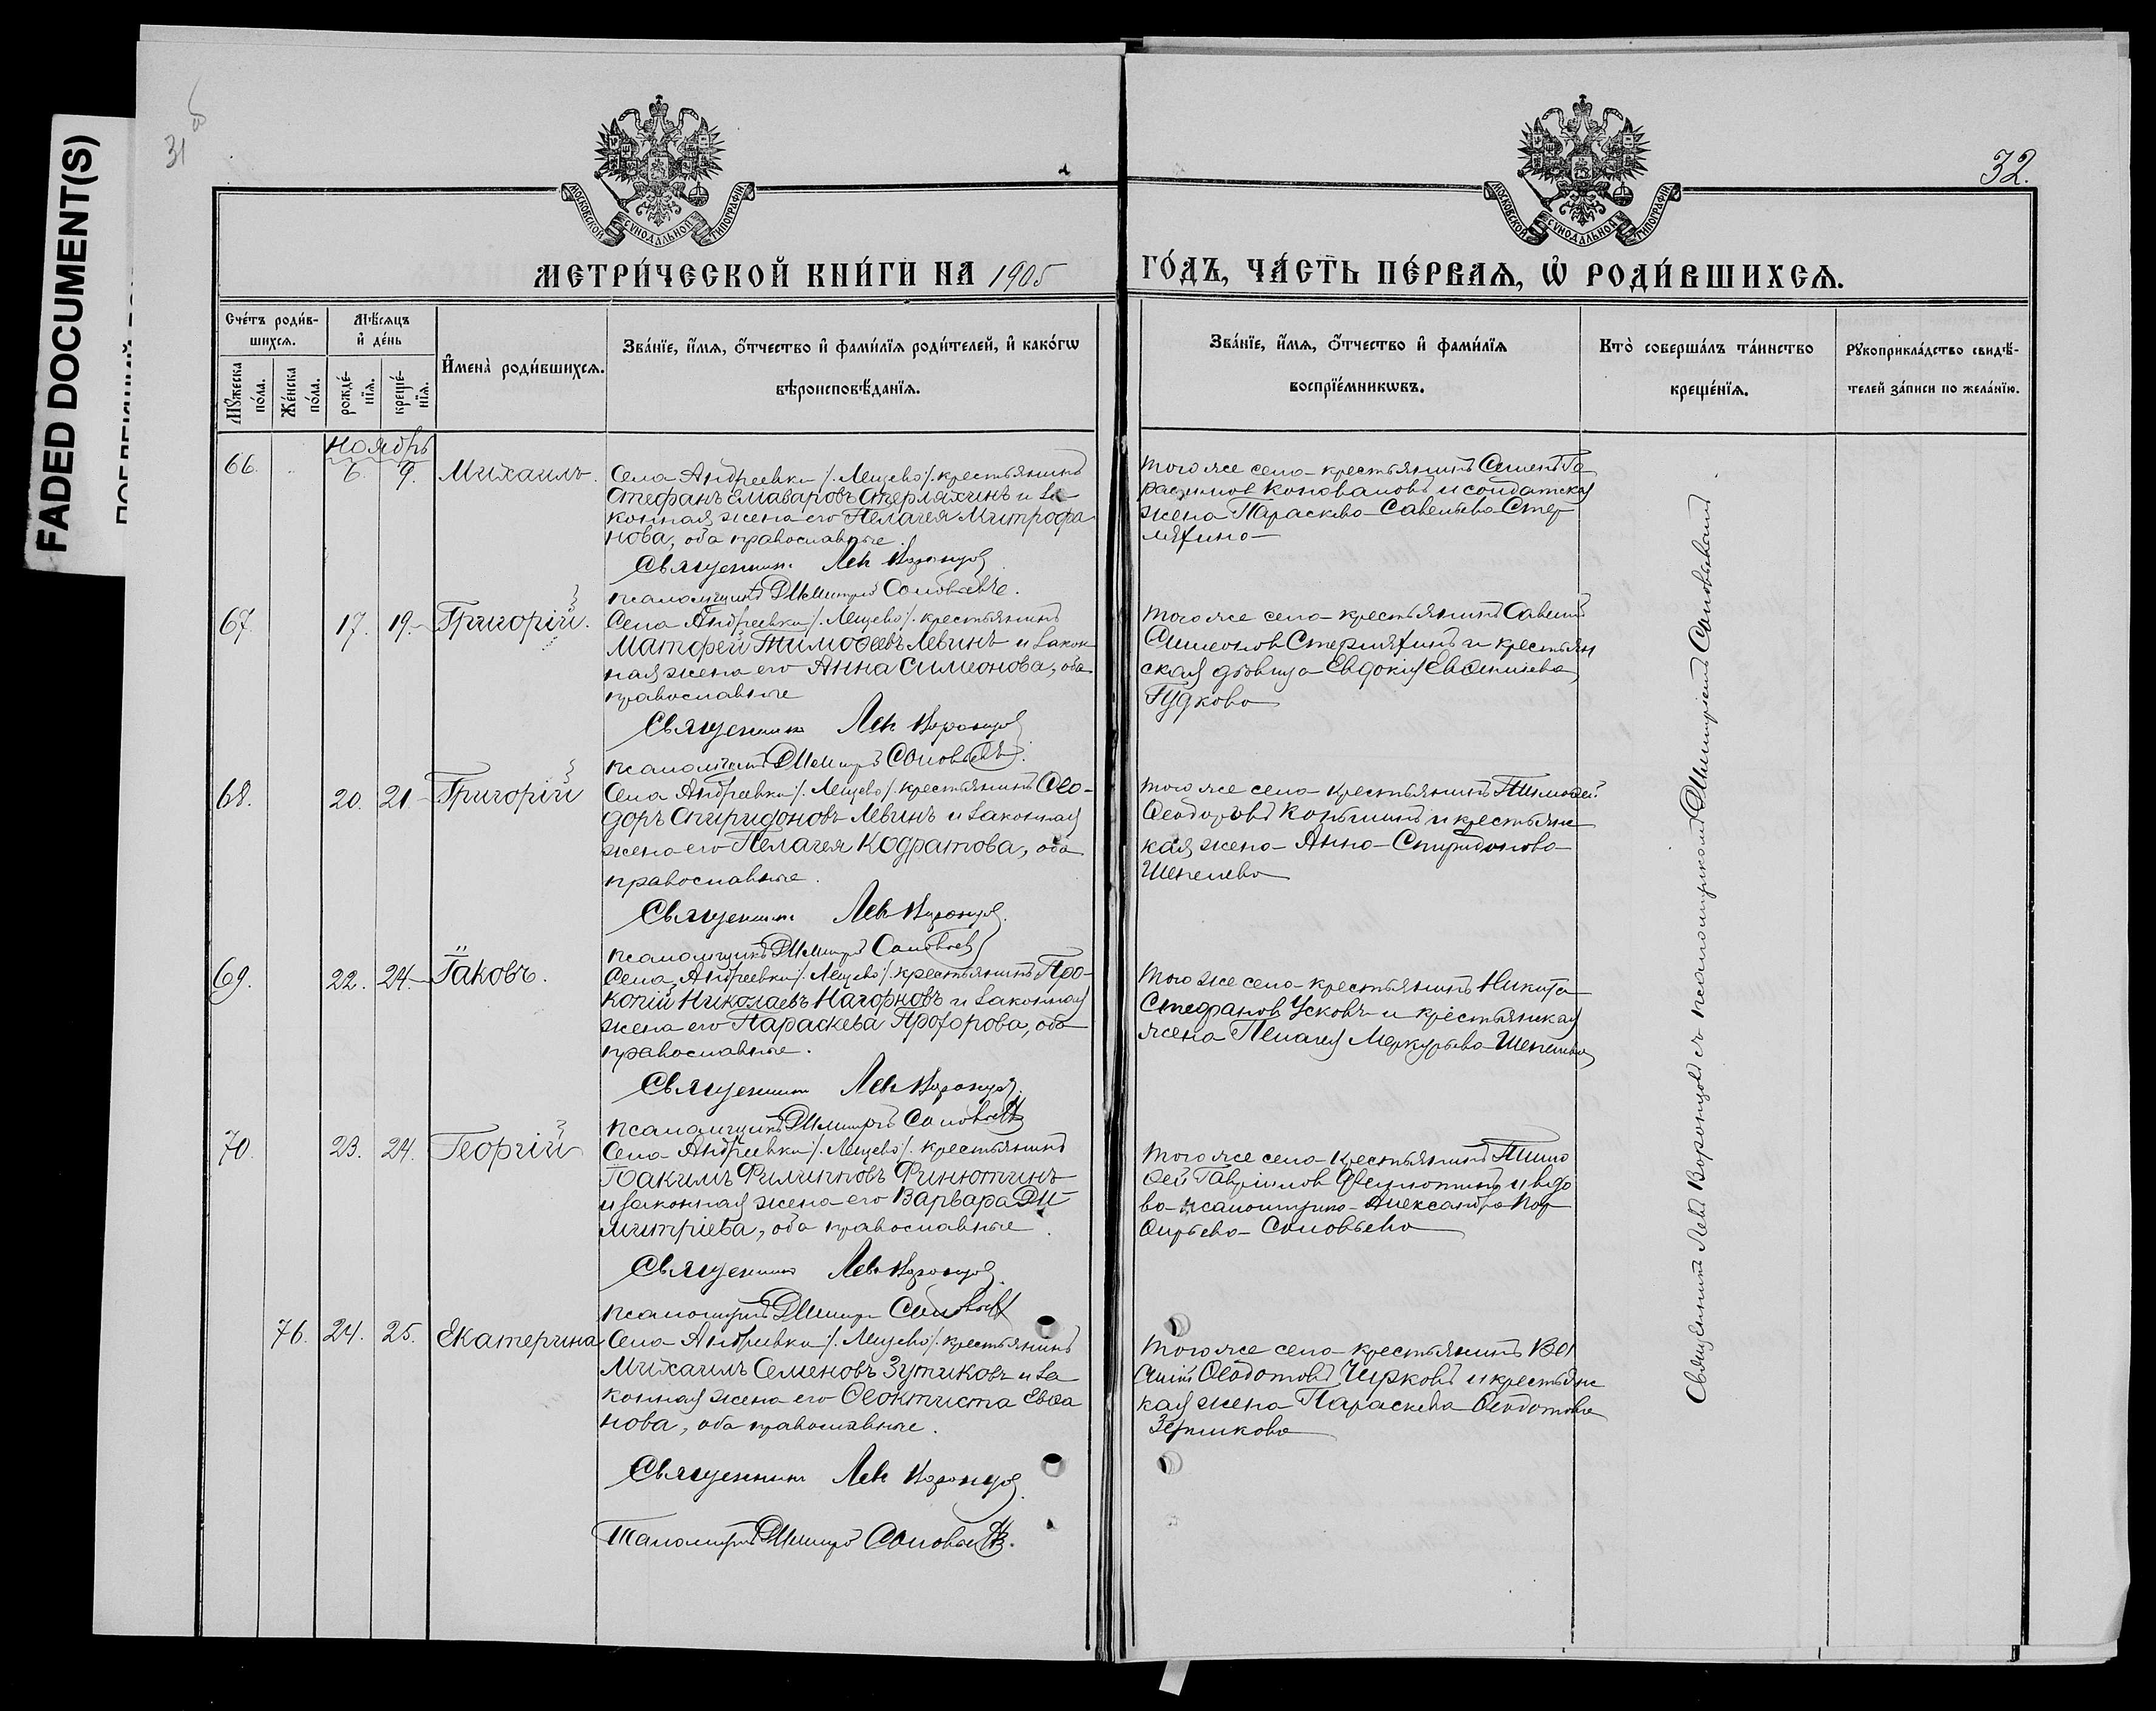 FADED DOCUMENT(S)
31 об
32.
МОСКОВСКОЙ СѴНОДАЛЬНОЙ ТИПОГРАФІИ
МОСКОВСКОЙ СѴНОДАЛЬНОЙ ТИПОГРАФІИ
МЕТРИ́ЧЕСКОЙ КНИ́ГИ НА 1905
ГО́ДЪ, ЧА́СТЬ ПЕ́РВАѦ, Ѡ҆ РОДИ́ВШИХСѦ.
Сче́тъ роди́в-
шихсѧ.
Мѣ́сѧцъ
и҆ де́нь
Мꙋ́жеска по́ла.
Же́нска по́ла.
рожде́-
нїѧ.
креще́-
нїѧ.
И҆мена̀ роди́вшихсѧ.
Зва́нїе, и҆́мѧ, ѻ҆́тчество и҆ фами́лїѧ роди́телей, и҆ како́гѡ
вѣроисповѣ́данїѧ.
Зва́нїе, и҆́мѧ, ѻ҆́тчество и҆ фами́лїѧ
воспрїе́мникѡвъ.
Кто̀ соверша́лъ та́инство
креще́нїѧ.
Рꙋкоприкла́дство свидѣ́-
телей за́писи по жела́нїю.
Ноябрь
66. 6. 9. Михаилъ.
Села Андреевки /. Лещево /. крестьянинъ
Стефанъ Стерляхинъ и за-
конная жена его Пелагея Митрофа
нова, оба православные.
Священникъ Левъ Воронцов
псаломщикъ Димитрій Соловьевъ.
того же села крестьянинъ Симеонъ Га
расимов Коновалов и солдатская
жена Параскева Савельева Стер
ляхина
67 17. 19. Григорій.
Села Андреевки /. Лещево /. крестьянинъ
Матфей Тимоѳеевъ Левинъ и закон
ная жена его Анна Симеонова, оба
православные
Священникъ Левъ Воронцов
псаломщикъ Димитрій Соловьевъ.
того же села крестьянинъ Савелій
Симеонов Стерляхинъ и крестьян
ская дѣвица Евдокія
Гудкова
68. 20. 21. Григорій
Села Андреевки /. Лещево /. крестьянинъ Ѳео-
доръ Спиридоновъ Левинъ и законная
жена его Пелагея Кодратова, оба
православные.
Священникъ Левъ Воронцов.
псаломщикъ Димитрій Соловьев
того же села крестьянинъ Тимоѳей
Ѳеодоровъ и крестьянс
кая жена Анна Спиридонова
Шепелева
69. 22. 24. Іаковъ.
Села Андреевки /. Лещево /. крестьянинъ Про-
копій Николаевъ Нагорновъ и законная
жена его Параскева Прохорова, оба
православные.
Священникъ Левъ Воронцов.
псаломщикъ Димитрій Соловьевъ
того же села крестьянинъ Никита
Стефанов Усковъ и крестьянская
жена Пелагея Меркурьева Шепелева
70. 23. 24. Георгій
Села Андреевки /. Лещево /. крестьянинъ
Іоакимъ Филипповъ Финютинъ
и законная жена его Варвара Ди-
митріева, оба православные.
Священникъ Левъ Воронцов.
псаломщикъ Димитрій Соловьевъ
того же села крестьянинъ Тимо
ѳей Гавріилов Финютинъ и вдо
ва псаломщика Александра Пор
фирьева Соловьева
76. 24. 25. Екатерина
Села Андреевки /. Лещево /. крестьянинъ
Михаилъ Семеновъ Зутиковъ и за
конная жена его Ѳеоктиста
нова, оба православные.
Священникъ Левъ Воронцов.
Псаломщикъ Димитрій Соловьевъ.
того же села крестьянинъ Ва
силій Ѳедотовъ Чирковъ и крестьянс
кая жена Параскева Ѳедотова
Священникъ Левъ Воронцовъ съ псаломщикомъ Димитріемъ Соловьевымъ